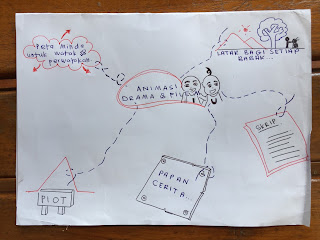 Peta Minda
untuk watak &
perwatakan
LATAR BAGI SETIAP
BABAK...
ANIMASI
DRAMA & FI
SKRIP
PAPAN
CERITA...
PLOT